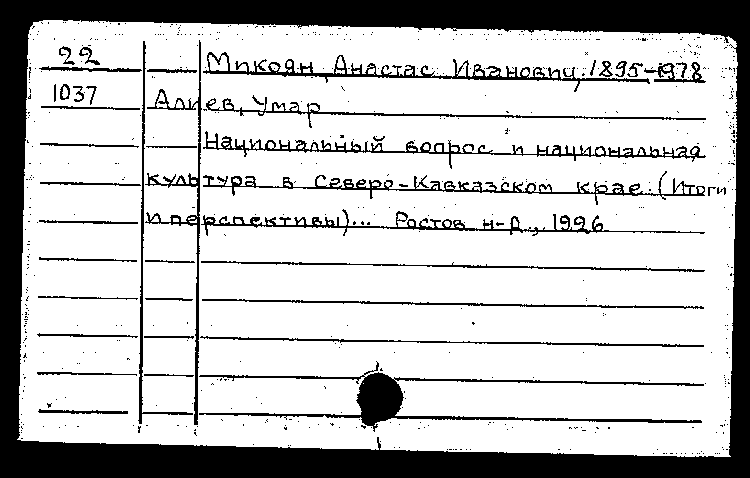 22 Микоян, Анастас Иванович, 1895-1978
1037 Алиев, Умар
Национальный вопрос и национальная
культура в Северо-Кавказском крае. (Итоги
и перспективы)... Ростов н-Д, 1926